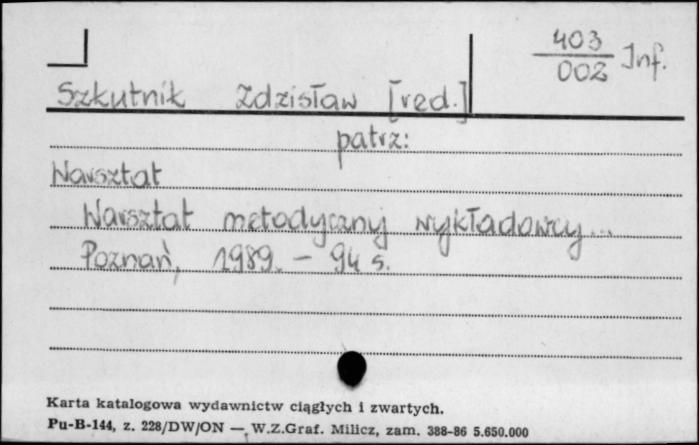 403
002 Inf.
Szkutnik Zdzisław [red.]
patrz:
Warsztat
Warsztat metodyczny wykładowcy...
Poznań, 1989. – 94 s.
Karta katalogowa wydawnictw ciągłych i zwartych.
Pu-B-144, z. 228/DW/ON — W.Z.Graf. Milicz, zam. 388-86 5.650.000